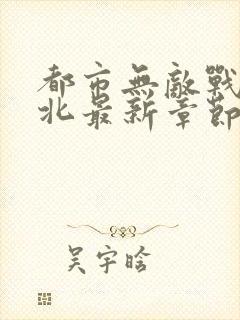 都市無敵戰
北最新章節
吴宇晗